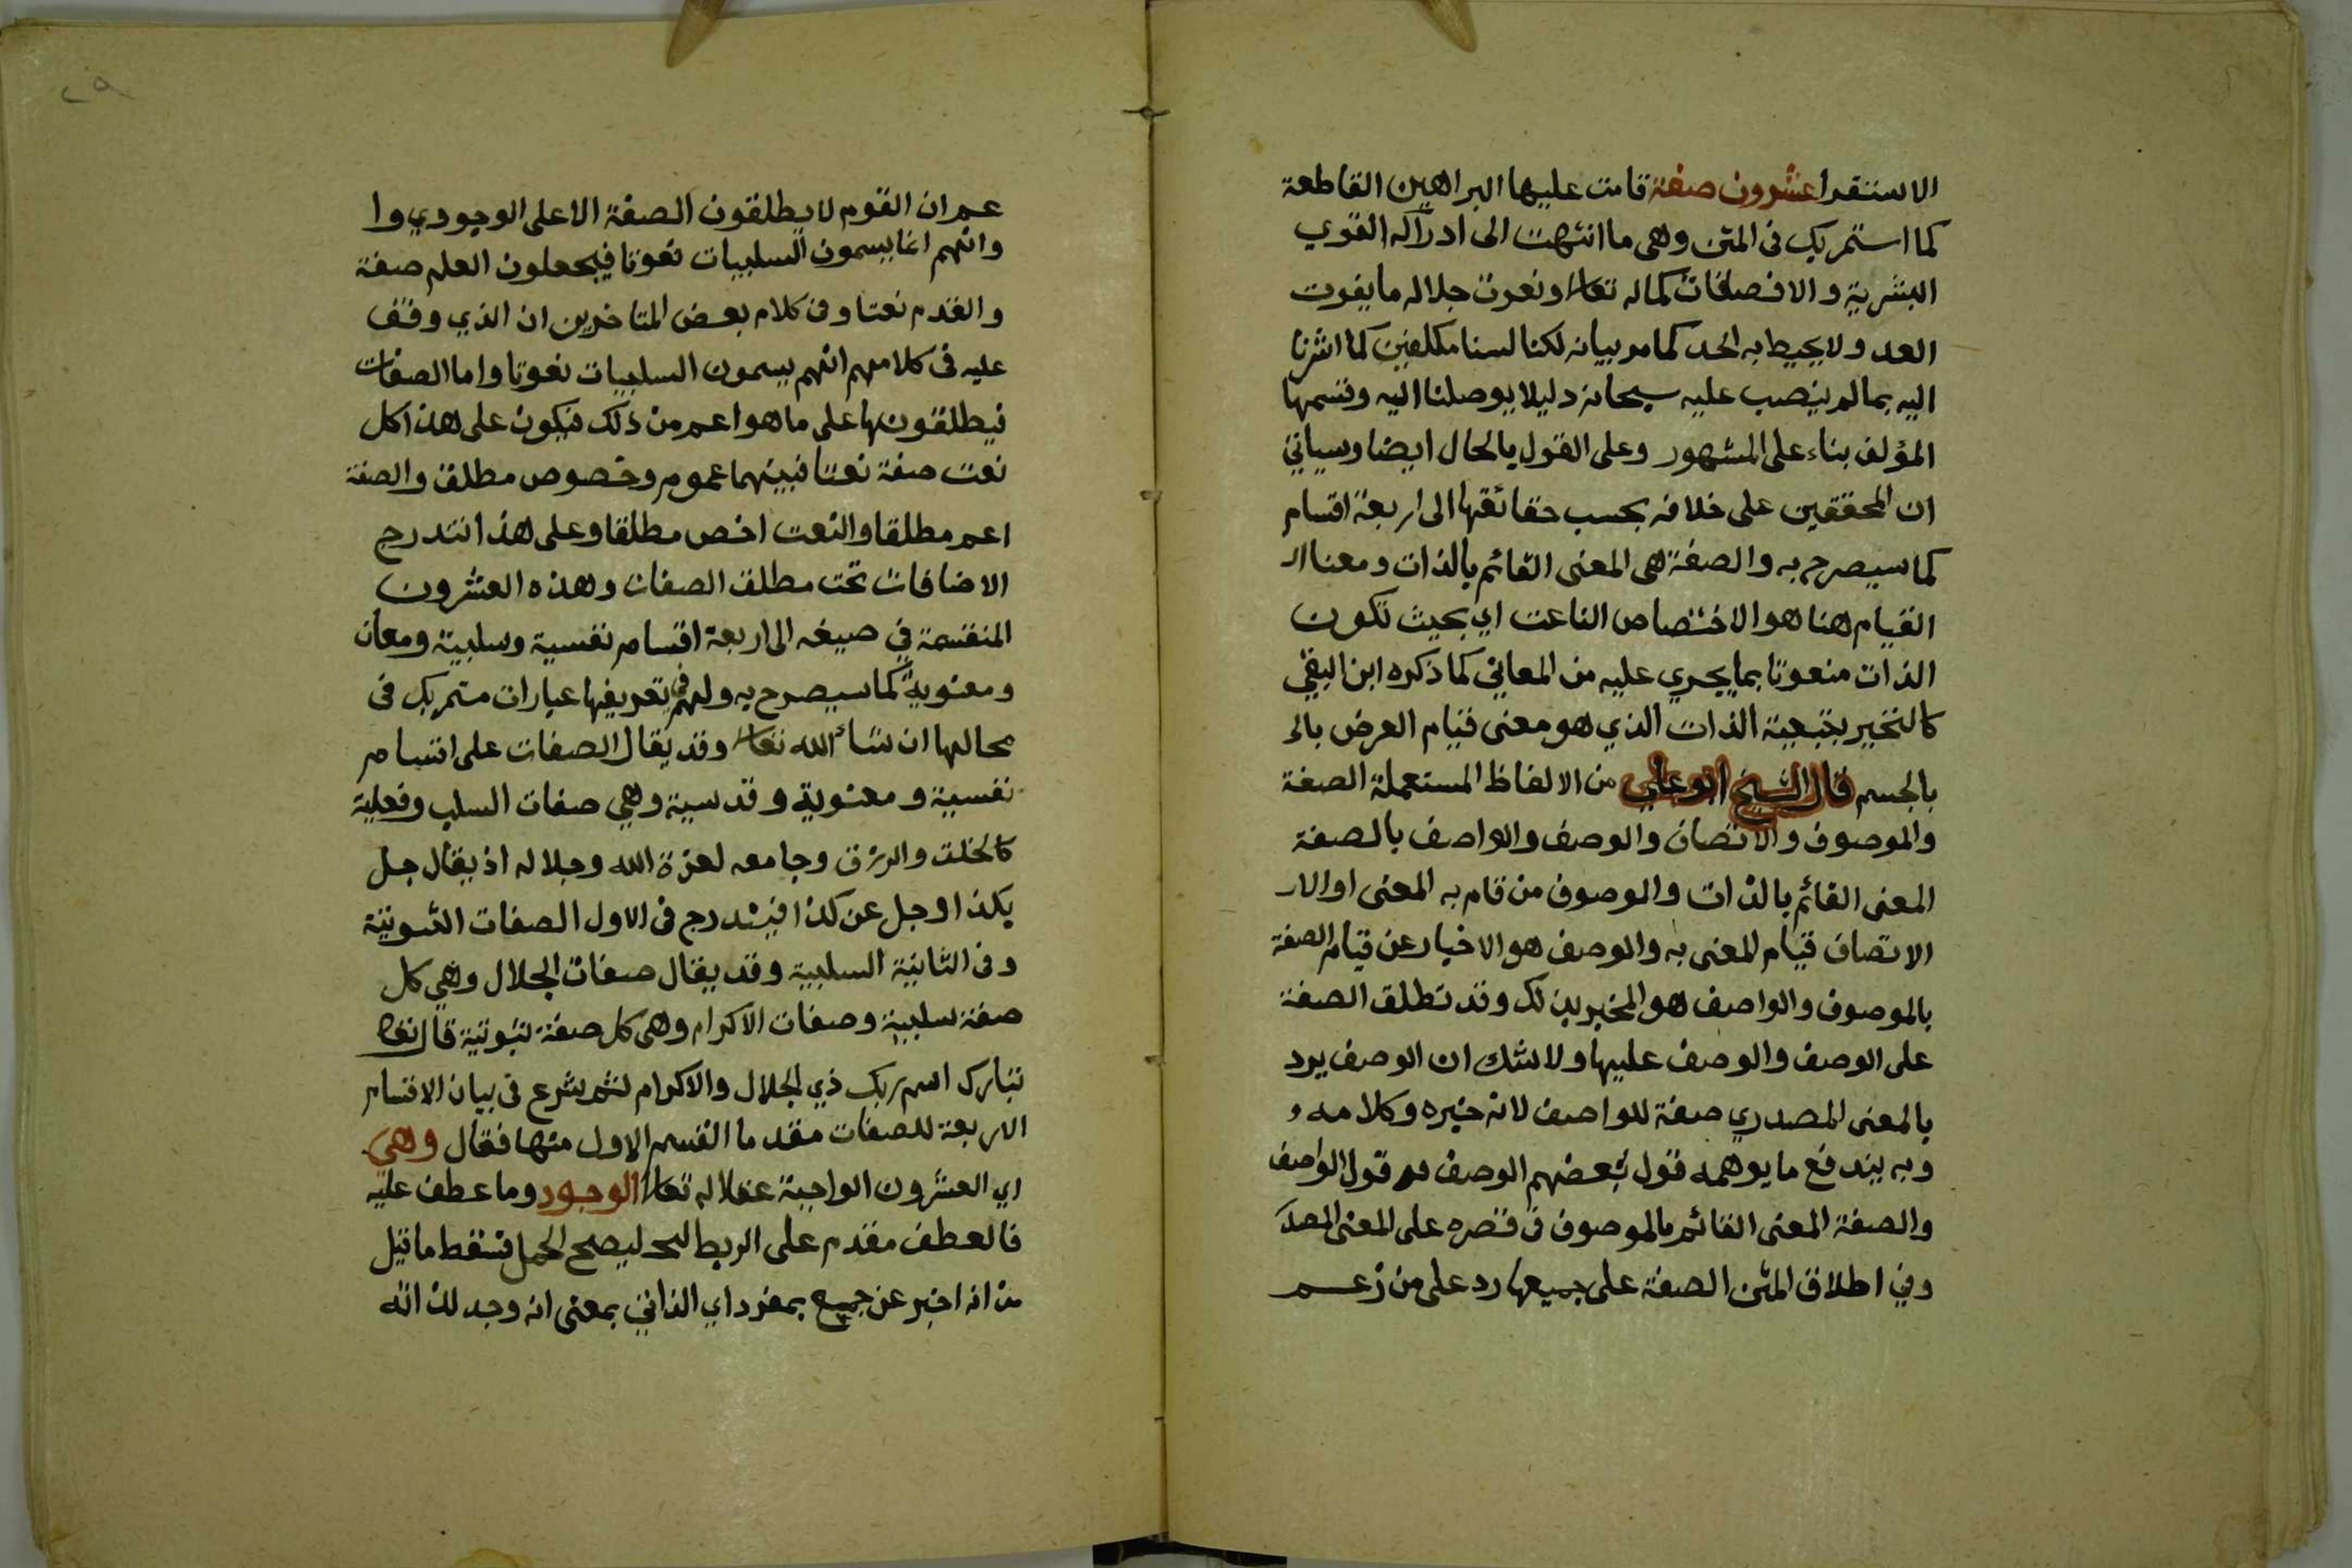 الاستقرا عشرون صفة قامت عليها البراهين القاطعة
كما استمر بك فى المتن وهى ما انتهت الى ادراكه القوي
البشرية والا فصفات كماله تعالى ونعوت جلاله ما يفوت
العد ولا يحيط به الحد كما مر بيانه لكنا لسنا مكلفين كما اشرنا
اليه بما لم ينصب عليه سبحانه دليلا يوصلنا اليه وقسمها
المؤلف بناء على المشهور وعلى القول بالحال ايضا وسياتي
ان المحققين على خلافه بحسب حقائقها الى اربعة اقسام
كما سيصرح به والصفة هى المعنى القائم بالذات ومعنا ال
القيام هنا هو الاختصاص الناعت اي بحيث تكون
الذات منعوتا بما يجري عليه من المعاني كما ذكره ابن
كالتحيز بتبعية الذات الذي هو معنى قيام العرض بال
بالجسم قال الشيخ ابو علي من الالفاظ المستعملة الصفة
والموصوف والاتصاف والوصف والواصف بالصفة
المعنى القائم بالذات والموصوف من قام به المعنى او الار
الاتصاف قيام المعنى به والوصف هو الاخبار عن قيام الصفة
بالموصوف والواصف هو المخبر بذلك وقد تطلق الصفة
على الوصف والوصف عليها ولا شك ان الوصف يرد
بالمعنى المصدري صفة للواصف لانه خبره وكلامه و
وبه يندفع ما يوهمه قول بعضهم الوصف قول الواصف
والصفة المعنى القائم بالموصوف فى قصره على المعنى المصد
وفي اطلاق المتن الصفة على جميعها رد على من زعم
٢٩
عمران القوم لا يطلقون الصفة الا على الوجودي وا
وانهم انما يسمون السلبيات نعوتا فيجعلون العلم صفة
والقدم نعتا وفى كلام بعض المتاخرين ان الذي وقف
عليه فى كلامهم انهم يسمون السلبيات نعوتا واما الصفات
فيطلقونها على ما هو اعم من ذلك فيكون على هذا كل
نعت صفة نعتا فبينهما عموم وخصوص مطلق والصفة
اعم مطلقا والنعت اخص مطلقا وعلى هذا تندرج
الاضافات تحت مطلق الصفات وهذه العشرون
المنقسمة في صيغه الى اربعة اقسام نفسية وسلبية ومعان
ومعنوية كما سيصرح به ولهم في تعريفها عبارات ستمر بك فى
محالها ان شاء الله تعالى وقد يقال الصفات على اقسام
نفسية ومعنوية وقدسية وهي صفات السلب وفعلية
كالخلق والرزق وجامعه لعزة الله وجلاله اذ يقال جل
بكذا وجل عن كذا فيندرج فى الاول الصفات الثبوتية
وفى الثانية السلبية وقد يقال صفات الجلال وهي كل
صفة سلبية وصفات الاكرام وهى كل صفة ثبوتية قال تعالى
تبارك اسم ربك ذي الجلال والاكرام ثم شرع فى بيان الاقسام
الاربعة للصفات مقدما القسم الاول منها فقال وهى
اي العشرون الواجبة عقلا له تعالى الوجود وما عطف عليه
فالعطف مقدم على الربط ليصح الحمل فسقط ما قيل
من انه اخبر عن جميع بمفرد اي الذاتي بمعنى انه وجد لذاته